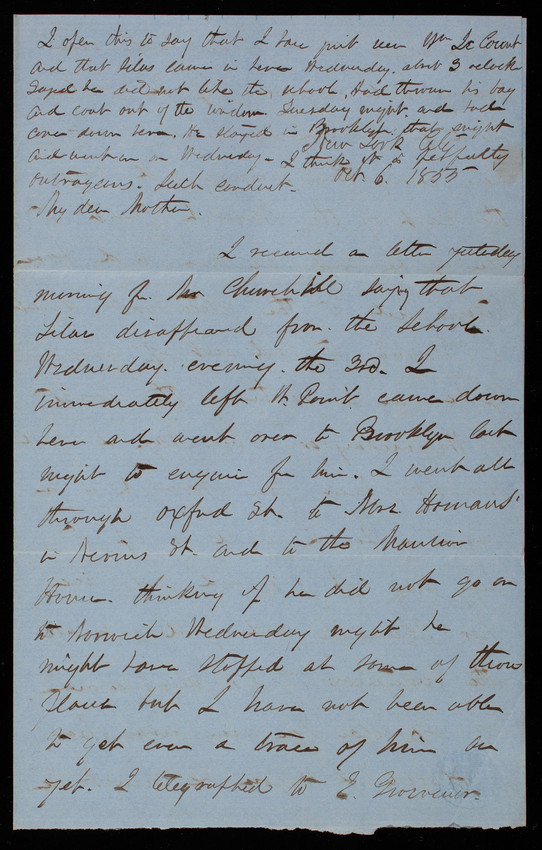 I open this to say that I have just seen Wm Le Count
and that Silas came in here Wednesday about 3 oclock
Sayed he did not like the school, had thrown his bag
and coat out of the window Tuesday night and had
come down here. He stayed in Brooklyn that night
and went on on Wednesday - I think it is perfectly
outrageous. Such conduct.
New York City
Oct. 6. 1855
My dear Mother.
I received a letter yesterday
morning fr. Mr Churchill saying that
Silas disappeared from the School
Wednesday evening the 3rd. I
immediately left W. Point came down
here and went over to Brooklyn last
night to enquire for him. I went all
through Oxford St. to Mrs Homans'
in Nevins St. and to the Mansion
House. thinking if he did not go on
to Norwich Wednesday night he
might have stopped at some of those
places but I have not been able
to get even a trace of him as
yet. I telegraphed to E. Grosvenor.